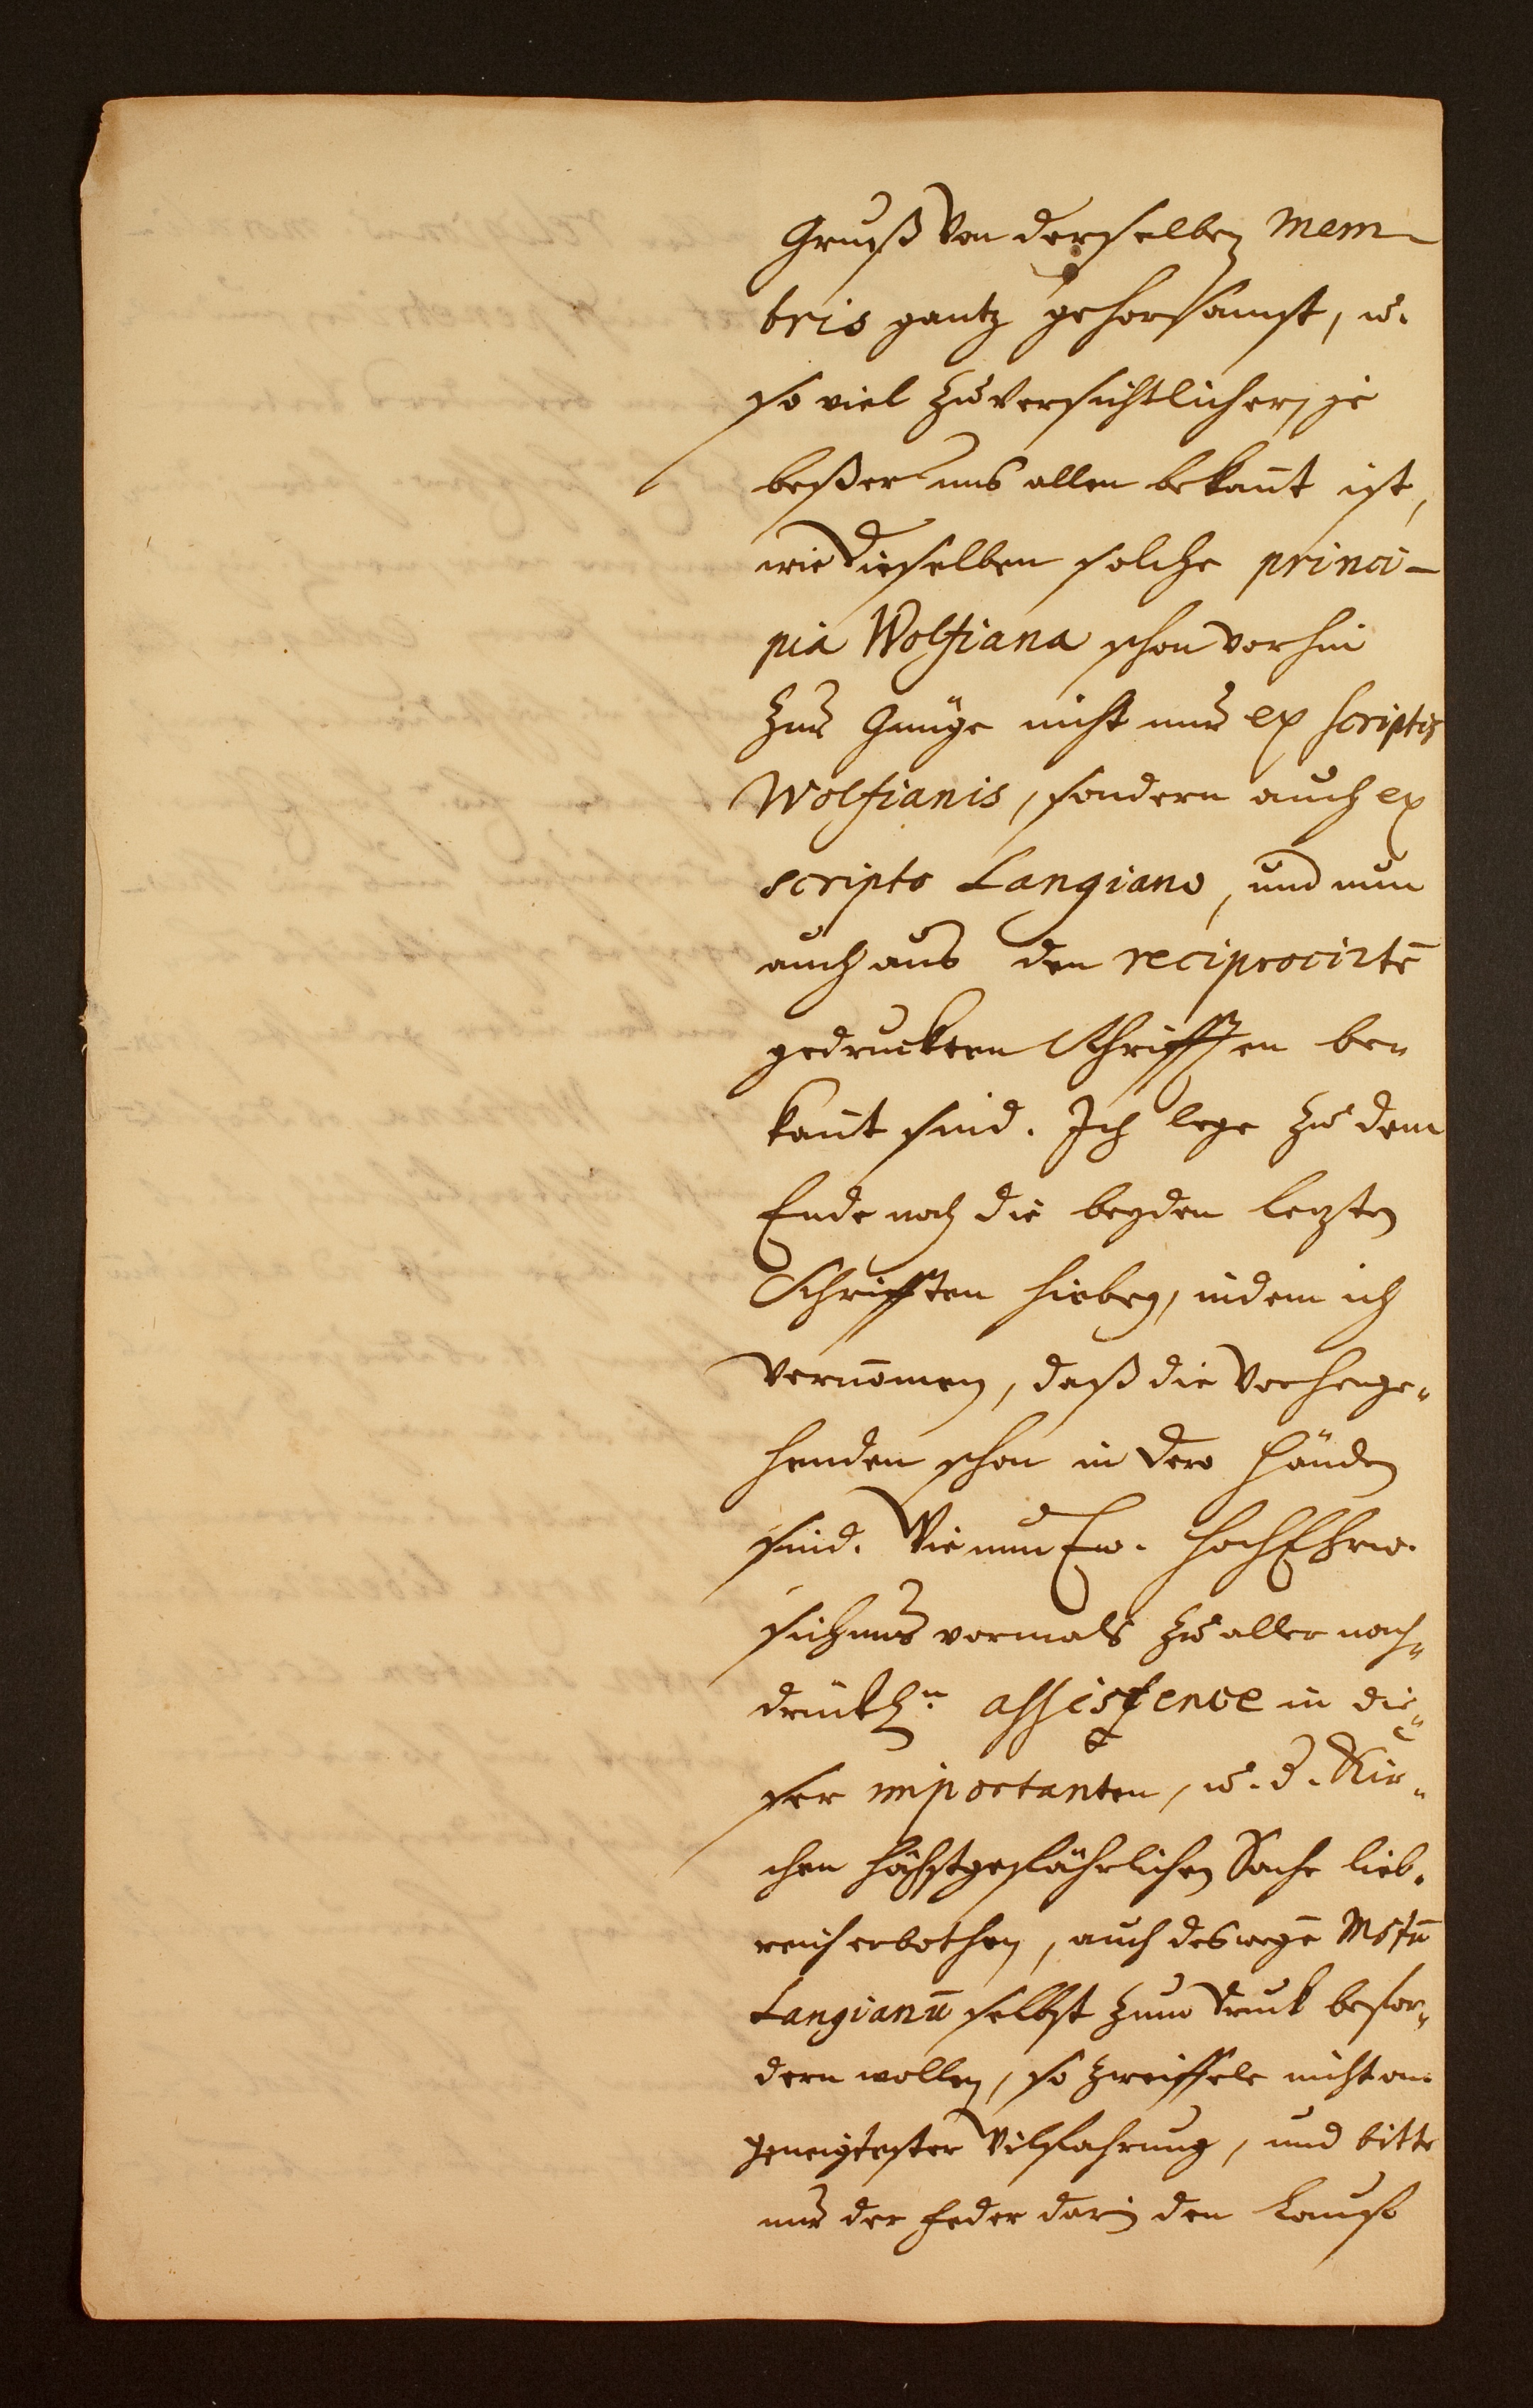 Gruß von derselben Mem-
bris gantz gehorsamst, u.
so viel zuversichtlicher, je
beßer uns allen bekan̄t ist,
wie dieselben solche princi-
pia Wolfiana schon vorhin
zur Gnüge nicht nur ex scriptis
Wolfianis, sondern auch ex
scripto Langiano, und nun
auch aus den reciprocirtē
gedruckten Schrifften be-
kan̄t sind. Ich lege zu dem
Ende noch die beyden letzten
Schrifften hiebey, indem ich
vernom̄en, daß die vorherge-
henden schon in dero Händen
sind. Wie nun Ew. HochEhrw.
sich uns vormals zu aller nach-
drückl.n assistence in die-
ser importanten, u. d. Kir-
chen höchstgefährlichen Sache lieb-
reich erbothen, auch deswegē Mstū
Langianū selbst zum Druck befor-
dern wollen, so zweiffele nicht an
geneigtester Wilfahrung, und bitte
nur der Feder darin den Lauff